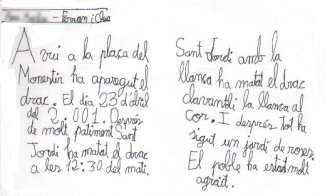 - Ferran i Cloe
Avui a la plaça del
Monestir ha aparegut el
drac. El dia 23 d'abril
del 2.001. Després
de molt patiment Sant
Jordi ha matat el drac
a les 12:30 del matí.
Sant Jordi amb la
llança ha matat el drac
clavantli la llança al
cor. I després tot ha
sigut un jardí de roses.
El poble ha estat molt
agraït.